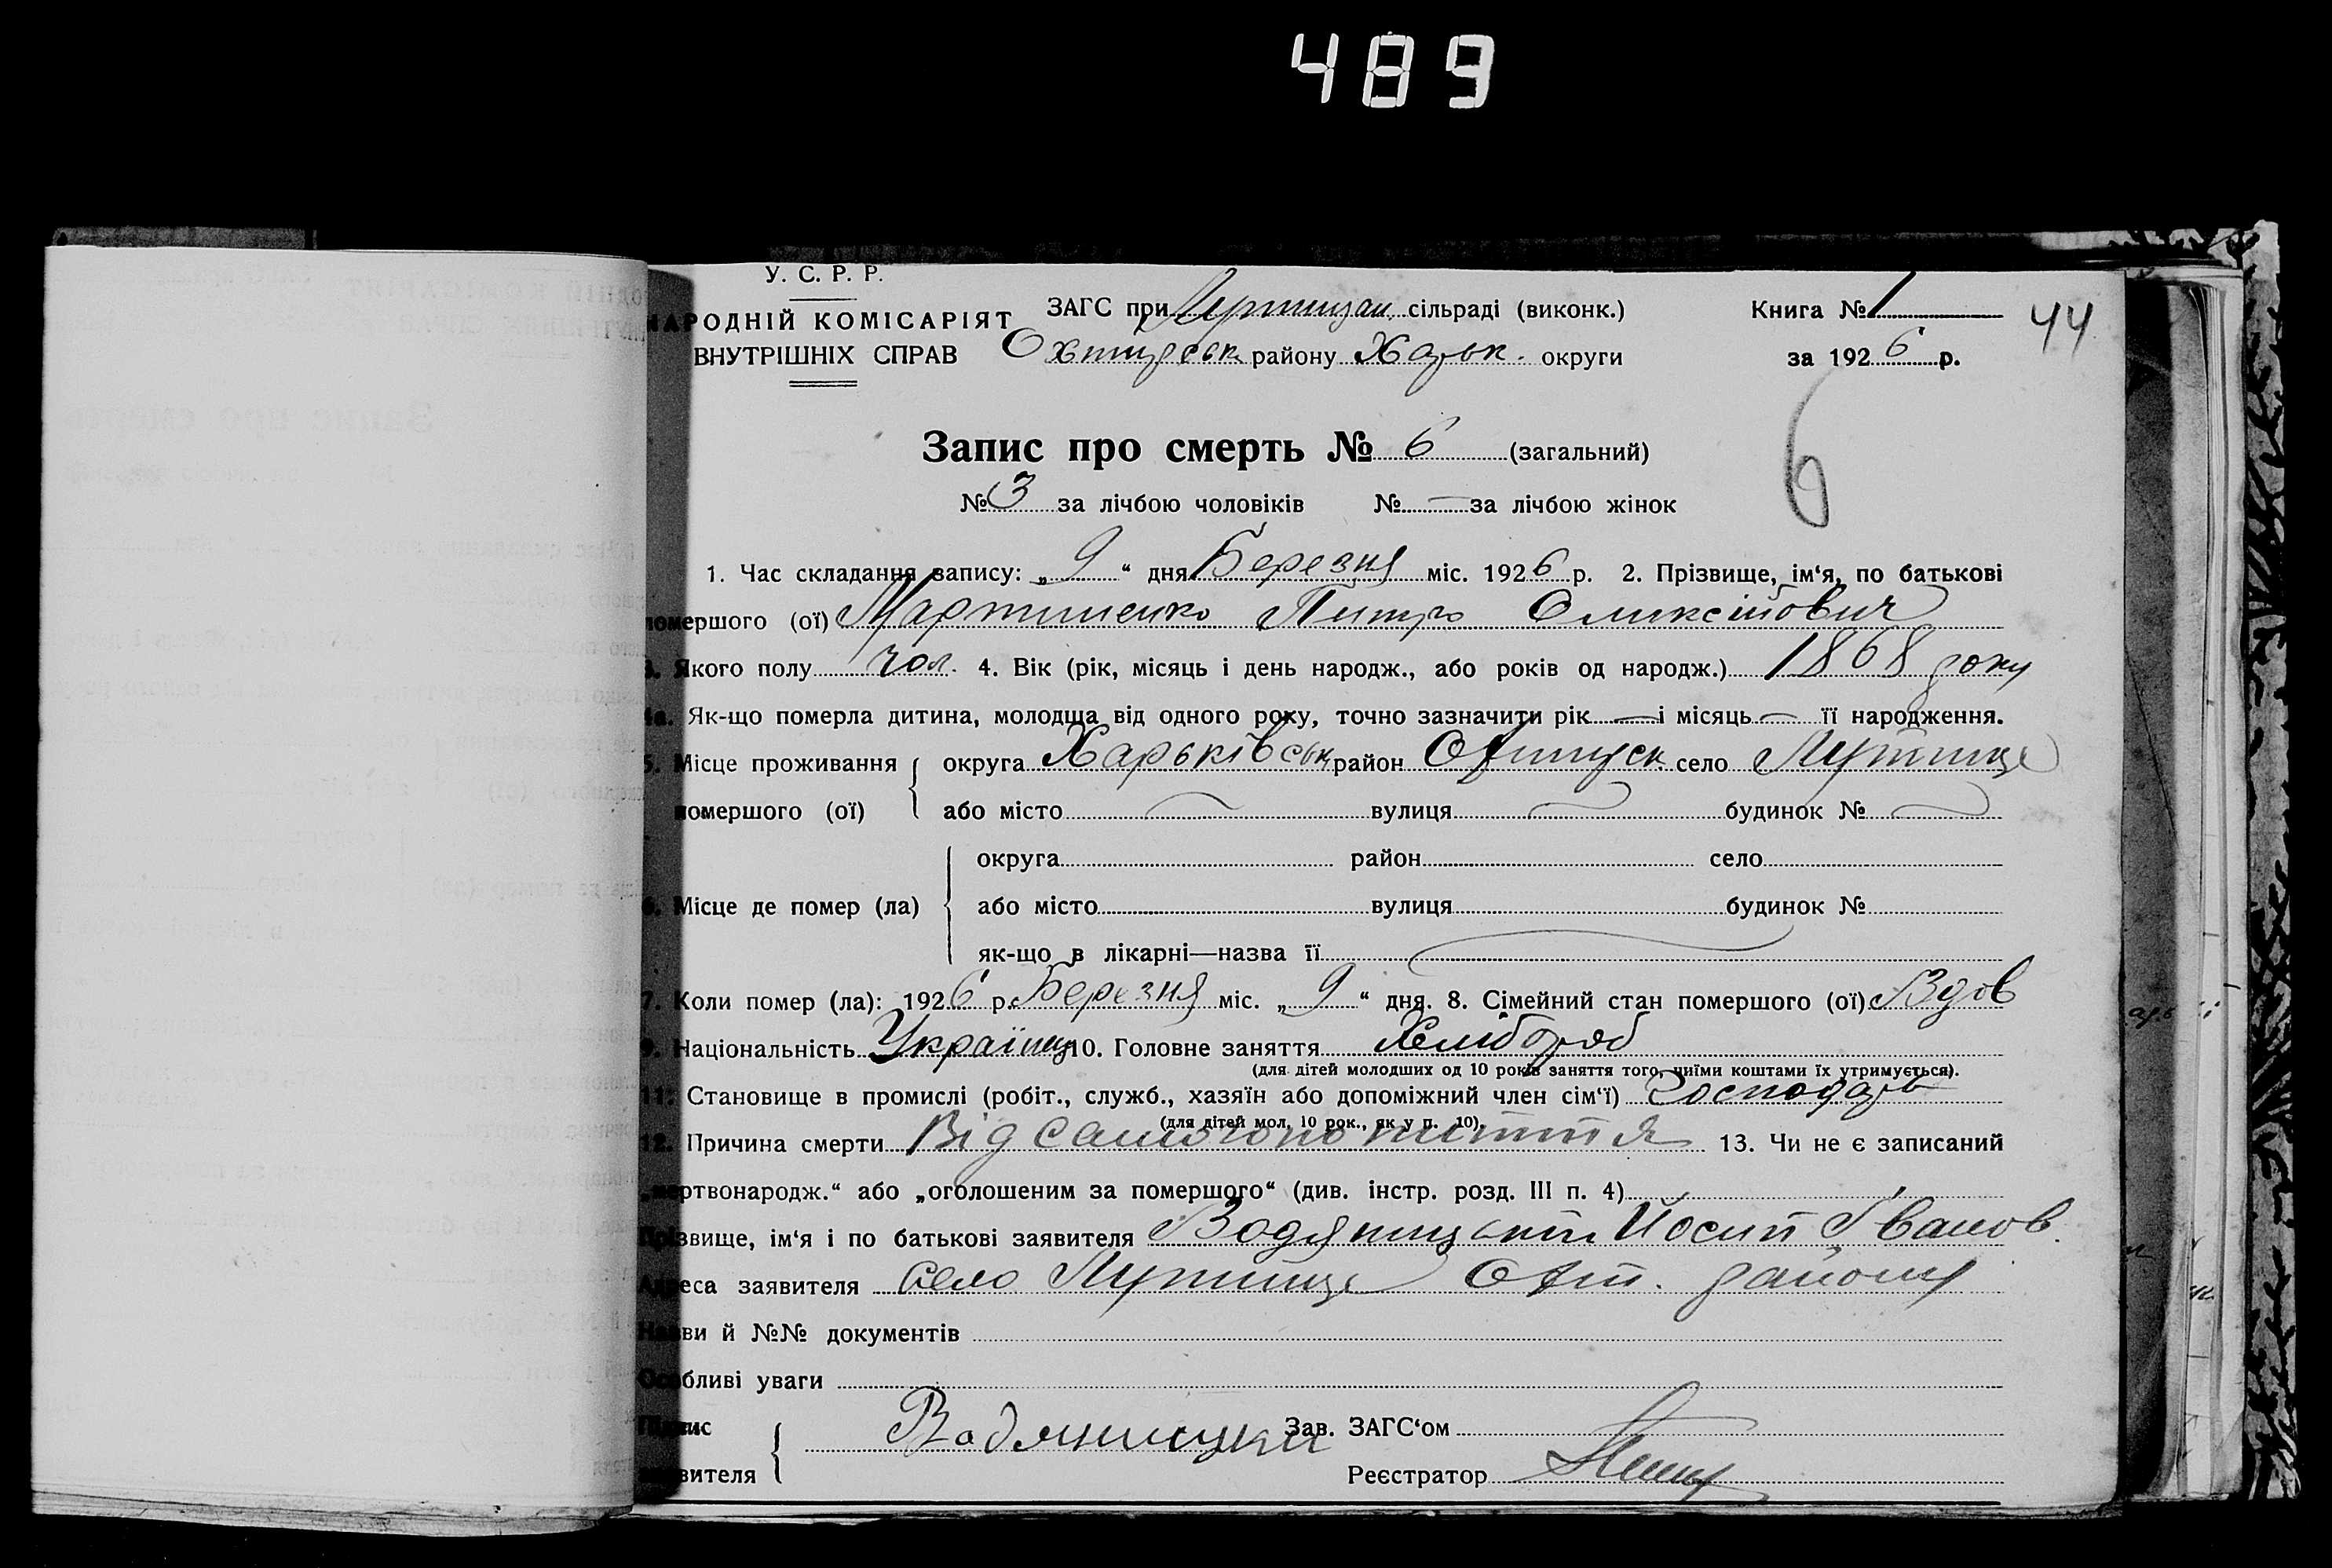 489
У. С. Р. Р.
НАРОДНІЙ КОМІСАРІЯТ
ВНУТРІШНІХ СПРАВ
ЗАГС при сільраді (виконк.)
Охтирськ району Харьк. округи
Книга № 1
за 1926 р.
44
Запис про смерть № 6 (загальний)
6
№ 3 за лічбою чоловіків № — за лічбою жінок
1. Час складання запису: „9“ дня Березня міс. 1926 р. 2. Прізвище, ім‘я, по батькові
помершого (ої) Мартиненко Питро Оликсійович
3. Якого полу чол. 4. Вік (рік, місяць і день народж., або років од народж.) 1868 року
4а. Як-що померла дитина, молодша від одного року, точно зазначити рік — і місяць — її народження.
5. Місце проживання округа Харьківськ район село Лутище
помершого (ої) або місто вулиця будинок №
округа район село
6. Місце де помер (ла) або місто вулиця будинок №
як-що в лікарні—назва її
7. Коли помер (ла): 1926 р. Березня міс. „9“ дня. 8. Сімейний стан помершого (ої) Вдов
9. Національність Українц 10. Головне заняття Хлібороб
(для дітей молодших од 10 років заняття того, чиїми коштами їх утримується).
11. Становище в промислі (робіт., служб., хазяїн або допоміжний член сім‘ї) Господарь
(для дітей мол. 10 рок., як у п. 10).
12. Причина смерти Від самогоно питтія 13. Чи не є записаний
„мертвонародж.“ або „оголошеним за помершого“ (див. інстр. розд. III п. 4)
Прізвище, ім‘я і по батькові заявителя Йосип Іванов.
Адреса заявителя село Лутище Охт. району
Назви й №№ документів
Особливі уваги
Підпис Зав. ЗАГС‘ом
заявителя Реєстратор